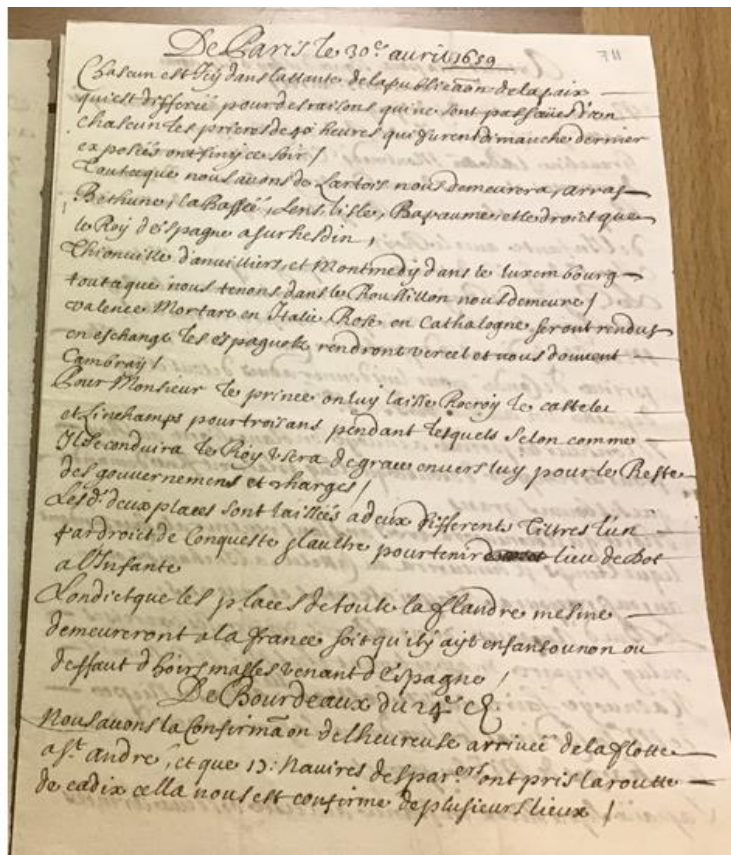 De Paris le 30e auril 1659
Chascun est Icy dans lattante de la publicaōn de la paix
qui est differée pour des raisons qui ne sont pas sçaües d'un
chascun les prieres de 40 heures qui furent dimanche dernier
exposées ont finy ce soir /
Tout ce que nous auons de Lartois nous demeurera, arras
Bethune, la Bassée, Lens, lisle, Bapaume, et le droict que
le Roy d'espagne a sur hesdin,
Thionuille danuilliers, et Montmedy dans le luxembourg
tout ce que nous tenons dans le Roussillon nous demeure /
valence Mortare en Italie, Rose en Cathalogne seront rendus
en eschange les espagnolz rendront vercel et nous donnent
Cambray /
Pour Monsieur le prince on luy laisse Rocroy le castelet
et Linchamps pour trois ans pendant lesquels selon comme
Il se conduira le Roy vsera de grace enuers luy pour le Reste
des gouuernemens et charges /
Les d. deux places sont laissées a deux differents Tiltres l'un
par droict de Conqueste & laultre pour tenir lieu de Dot
a l'Infante
Lon dict que les places de toute la flandre mesme
demeureront a la france soit qu'il y ayt enfans ou non ou
deffaut d'hoirs masles venant d'espagne /
De Bourdeaux du 24e
Nous auons la Confirmaōn de lheureuse arriuée de la flotte
a st. andré, et que 13: Nauires de spar.ers ont pris la routte
de cadix cella nous est confirmé de plusieurs lieux /